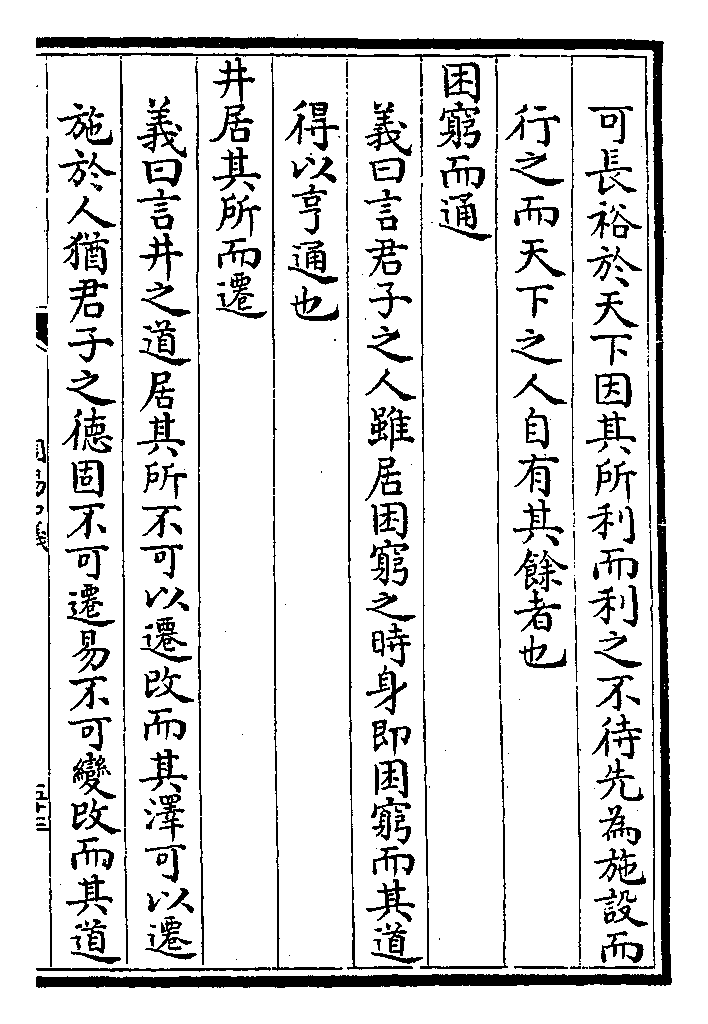 可長裕於天下因其所利而利之不待先為施設而
行之而天下之人自有其餘者也
困窮而通
義曰言君子之人雖居困窮之時身即困窮而其道
得以亨通也
井居其所而遷
義曰言井之道居其所不可以遷改而其澤可以遷
施於人猶君子之德固不可遷易不可變改而其道